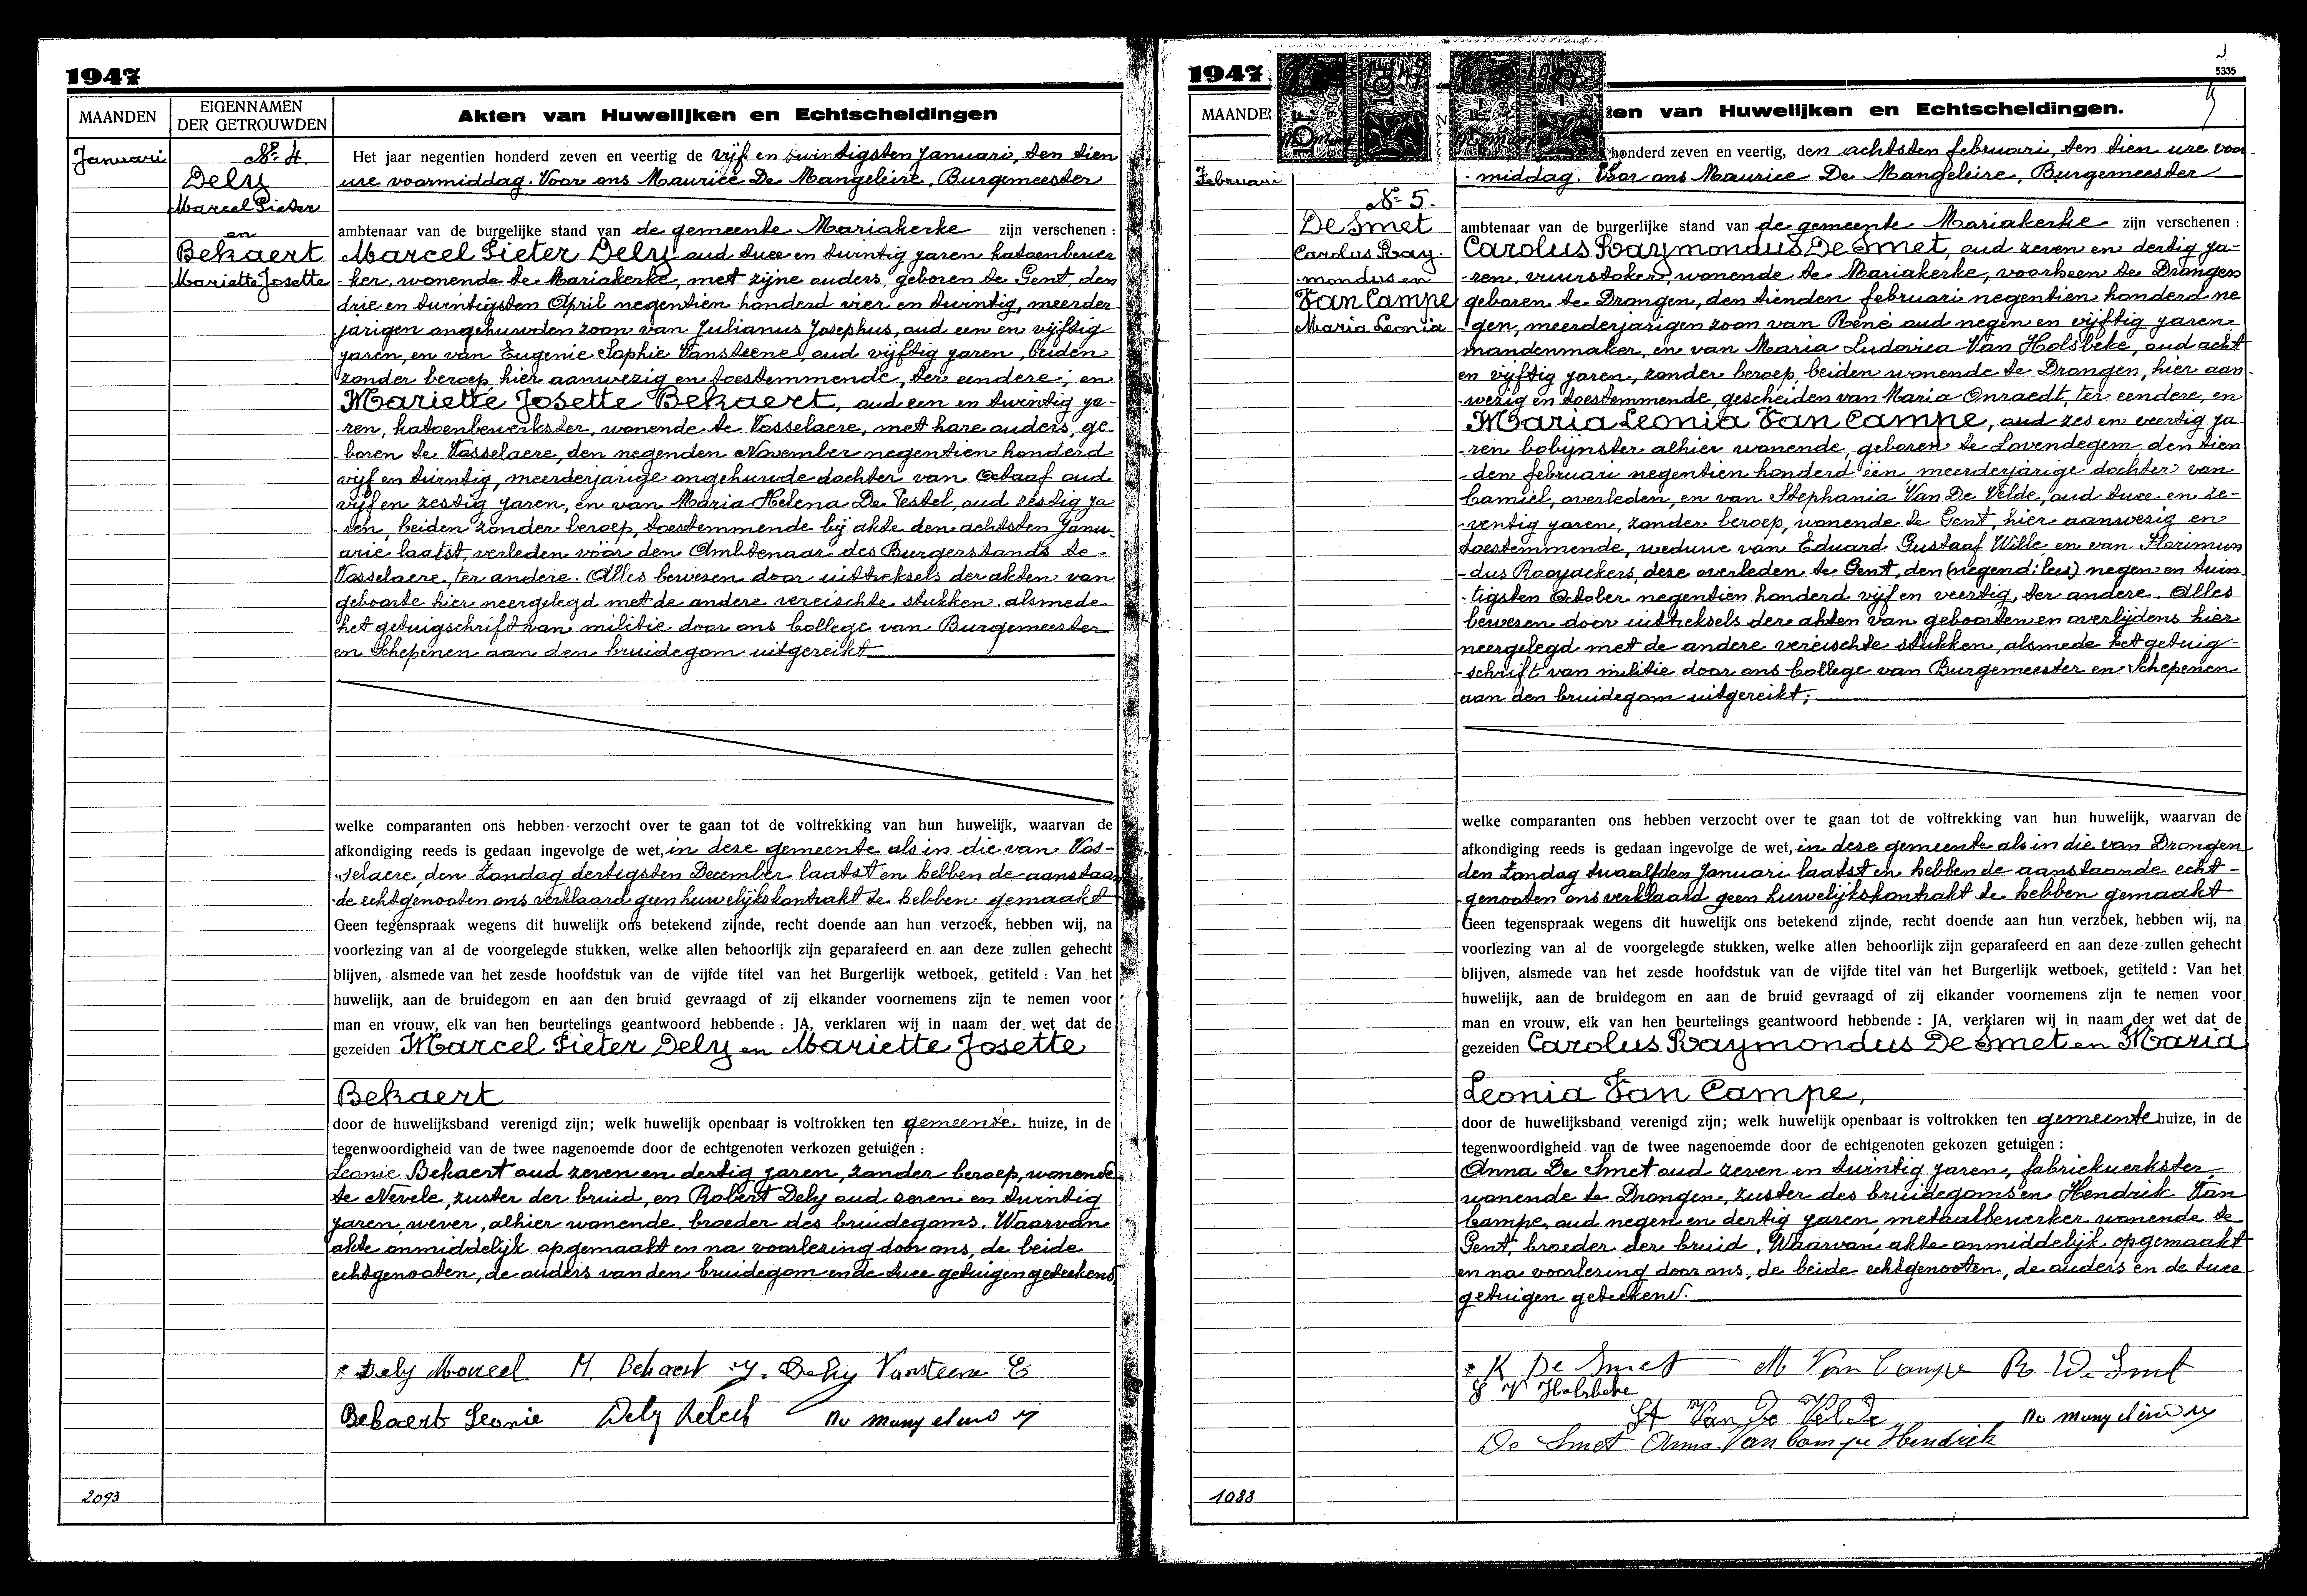 1947
MAANDEN
EIGENNAMEN
DER GETROUWDEN
Akten van Huwelijken en Echtscheidingen
Januari
No. 4.
Dely
Marcel Pieter
en
Bekaert
Mariette Josette
Het jaar negentien honderd zeven en veertig de vijf en twintigsten Januari, ten tien
ure voormiddag. Voor ons Maurice De Mangeleire, Burgemeester
ambtenaar van de burgelijke stand van de gemeente Mariakerke zijn verschenen :
Marcel Pieter Dely oud twee en twintig jaren katoenbewer
-ker, wonende te Mariakerke, met zijne ouders, geboren te Gent, den
drie en twintigsten April negentien honderd vier en twintig, meerder
jarigen ongehuwden zoon van Julianus Josephus, oud een en vijftig
jaren, en van Eugenie Sophie Vansteene, oud vijftig jaren, beiden
zonder beroep, hier aanwezig en toestemmende, ter eendere; en
Mariette Josette Bekaert, oud een en twintig ja-
-ren, katoenbewerkster, wonende te Vosselaere, met hare ouders, ge-
-boren te Vosselaere, den negenden November negentien honderd
vijf en twintig, meerderjarige ongehuwde dochter van Octaaf oud
vijf en zestig jaren, en van Maria Helena De Pestel, oud zestig ja
-ren, beiden zonder beroep, toestemmende bij akte den achtsten Janu-
arie laatst, verleden vóór den Ambtenaar des Burgerstands te
Vosselaere, ter andere. Alles bewesen door uittreksels der akten van
geboorte hier neergelegd met de andere vereischte stukken alsmede
het getuigschrift van militie door ons College van Burgemeester
en Schepenen aan den bruidegom uitgereikt
welke comparanten ons hebben verzocht over te gaan tot de voltrekking van hun huwelijk, waarvan de
afkondiging reeds is gedaan ingevolge de wet, in deze gemeente als in die van Vos-
-selaere, den Zondag dertigsten December laatst en hebben de aanstaan
-de echtgenooten ons verklaard geen huwelijkskontrakt te hebben gemaakt
Geen tegenspraak wegens dit huwelijk ons betekend zijnde, recht doende aan hun verzoek, hebben wij, na
voorlezing van al de voorgelegde stukken, welke allen behoorlijk zijn geparafeerd en aan deze zullen gehecht
blijven, alsmede van het zesde hoofdstuk van de vijfde titel van het Burgerlijk wetboek, getiteld : Van het
huwelijk, aan de bruidegom en aan den bruid gevraagd of zij elkander voornemens zijn te nemen voor
man en vrouw, elk van hen beurtelings geantwoord hebbende : JA, verklaren wij in naam der wet dat de
gezeiden Marcel Pieter Dely en Mariette Josette
Bekaert
door de huwelijksband verenigd zijn; welk huwelijk openbaar is voltrokken ten gemeente huize, in de
tegenwoordigheid van de twee nagenoemde door de echtgenoten verkozen getuigen :
Leonie Bekaert oud zeven en dertig jaren, zonder beroep, wonende
te Nevele, zuster der bruid, en Robert Dely oud zeven en twintig
jaren, wever, alhier wonende, broeder des bruidegoms. Waarvan
akte onmiddelijk opgemaakt en na voorlezing door ons, de beide
echtgenooten, de ouders van den bruidegom en de twee getuigen geteekend
Dely Marcel. M. Bekaert J. Dely Vansteene E
Bekaert Leonie Dely Robert
2093
1947
5335
MAANDE
ten van Huwelijken en Echtscheidingen.
Februari
No 5.
De Smet
Carolus Ray-
-mondus en
Van Campe
Maria Leonia
honderd zeven en veertig, den achtsten februari, ten tien ure voor-
-middag. Voor ons Maurice De Mangeleire, Burgemeester
ambtenaar van de burgerlijke stand van de gemeente Mariakerke zijn verschenen :
Carolus Raymondus De Smet, oud zeven en dertig ja-
-ren, vuurstoker, wonende te Mariakerke, voorheen te Drongen
geboren te Drongen, den tienden februari negentien honderd ne
-gen, meerderjarigen zoon van René oud negen en vijftig jaren
mandenmaker, en van Maria Ludovica Van Holsbeke, oud acht
en vijftig jaren, zonder beroep, beiden wonende te Drongen, hier aan-
-wezig en toestemmende, gescheiden van Maria Onraedt, ter eendere, en
Maria Leonia Van Campe, oud zes en veertig ja-
-ren bobijnster alhier wonende, geboren te Lovendegem, den tien
-den februari negentien honderd één, meerderjarige dochter van
Camiel, overleden, en van Stephania Van De Velde, oud twee en ze-
-ventig jaren, zonder beroep, wonende te Gent, hier aanwezig en
toestemmende, weduwe van Eduard Gustaaf Wille en van Florimun
-dus Rooyackers, deze overleden te Gent, den (negend: lees) negen en twin
-tigsten October negentien honderd vijf en veertig, ter andere. Alles
bewesen door uittreksels der akten van geboorten en overlijdens hier
neergelegd met de andere vereischte stukken, alsmede het getuig-
-schrift van militie door ons College van Burgemeester en Schepenen
aan den bruidegom uitgereikt;
welke comparanten ons hebben verzocht over te gaan tot de voltrekking van hun huwelijk, waarvan de
afkondiging reeds is gedaan ingevolge de wet, in deze gemeente als in die van Drongen
den Zondag twaalfden Januari laatst en hebben de aanstaande echt-
-genooten ons verklaard geen huwelijkskontrakt te hebben gemaakt
Geen tegenspraak wegens dit huwelijk ons betekend zijnde, recht doende aan hun verzoek, hebben wij, na
voorlezing van al de voorgelegde stukken, welke allen behoorlijk zijn geparafeerd en aan deze zullen gehecht
blijven, alsmede van het zesde hoofdstuk van de vijfde titel van het Burgerlijk wetboek, getiteld : Van het
huwelijk, aan de bruidegom en aan de bruid gevraagd of zij elkander voornemens zijn te nemen voor
man en vrouw, elk van hen beurtelings geantwoord hebbende : JA, verklaren wij in naam der wet dat de
gezeiden Carolus Raymondus De Smet en Maria
Leonia Van Campe,
door de huwelijksband verenigd zijn; welk huwelijk openbaar is voltrokken ten gemeente huize, in de
tegenwoordigheid van de twee nagenoemde door de echtgenoten gekozen getuigen :
Anna De Smet oud zeven en twintig jaren, fabriekwerkster,
wonende te Drongen, zuster des bruidegoms en Hendrik Van
Campe, oud negen en dertig jaren metaalbewerker wonende te
Gent, broeder der bruid. Waarvan akte onmiddelijk opgemaakt
en na voorlezing door ons, de beide echtgenooten, de ouders en de twee
getuigen geteekend.
K De Smet M Van Campe R De Smet
L V Holsbeke
St Van De Velde
De Smet Anna Van Campe Hendrik
1088